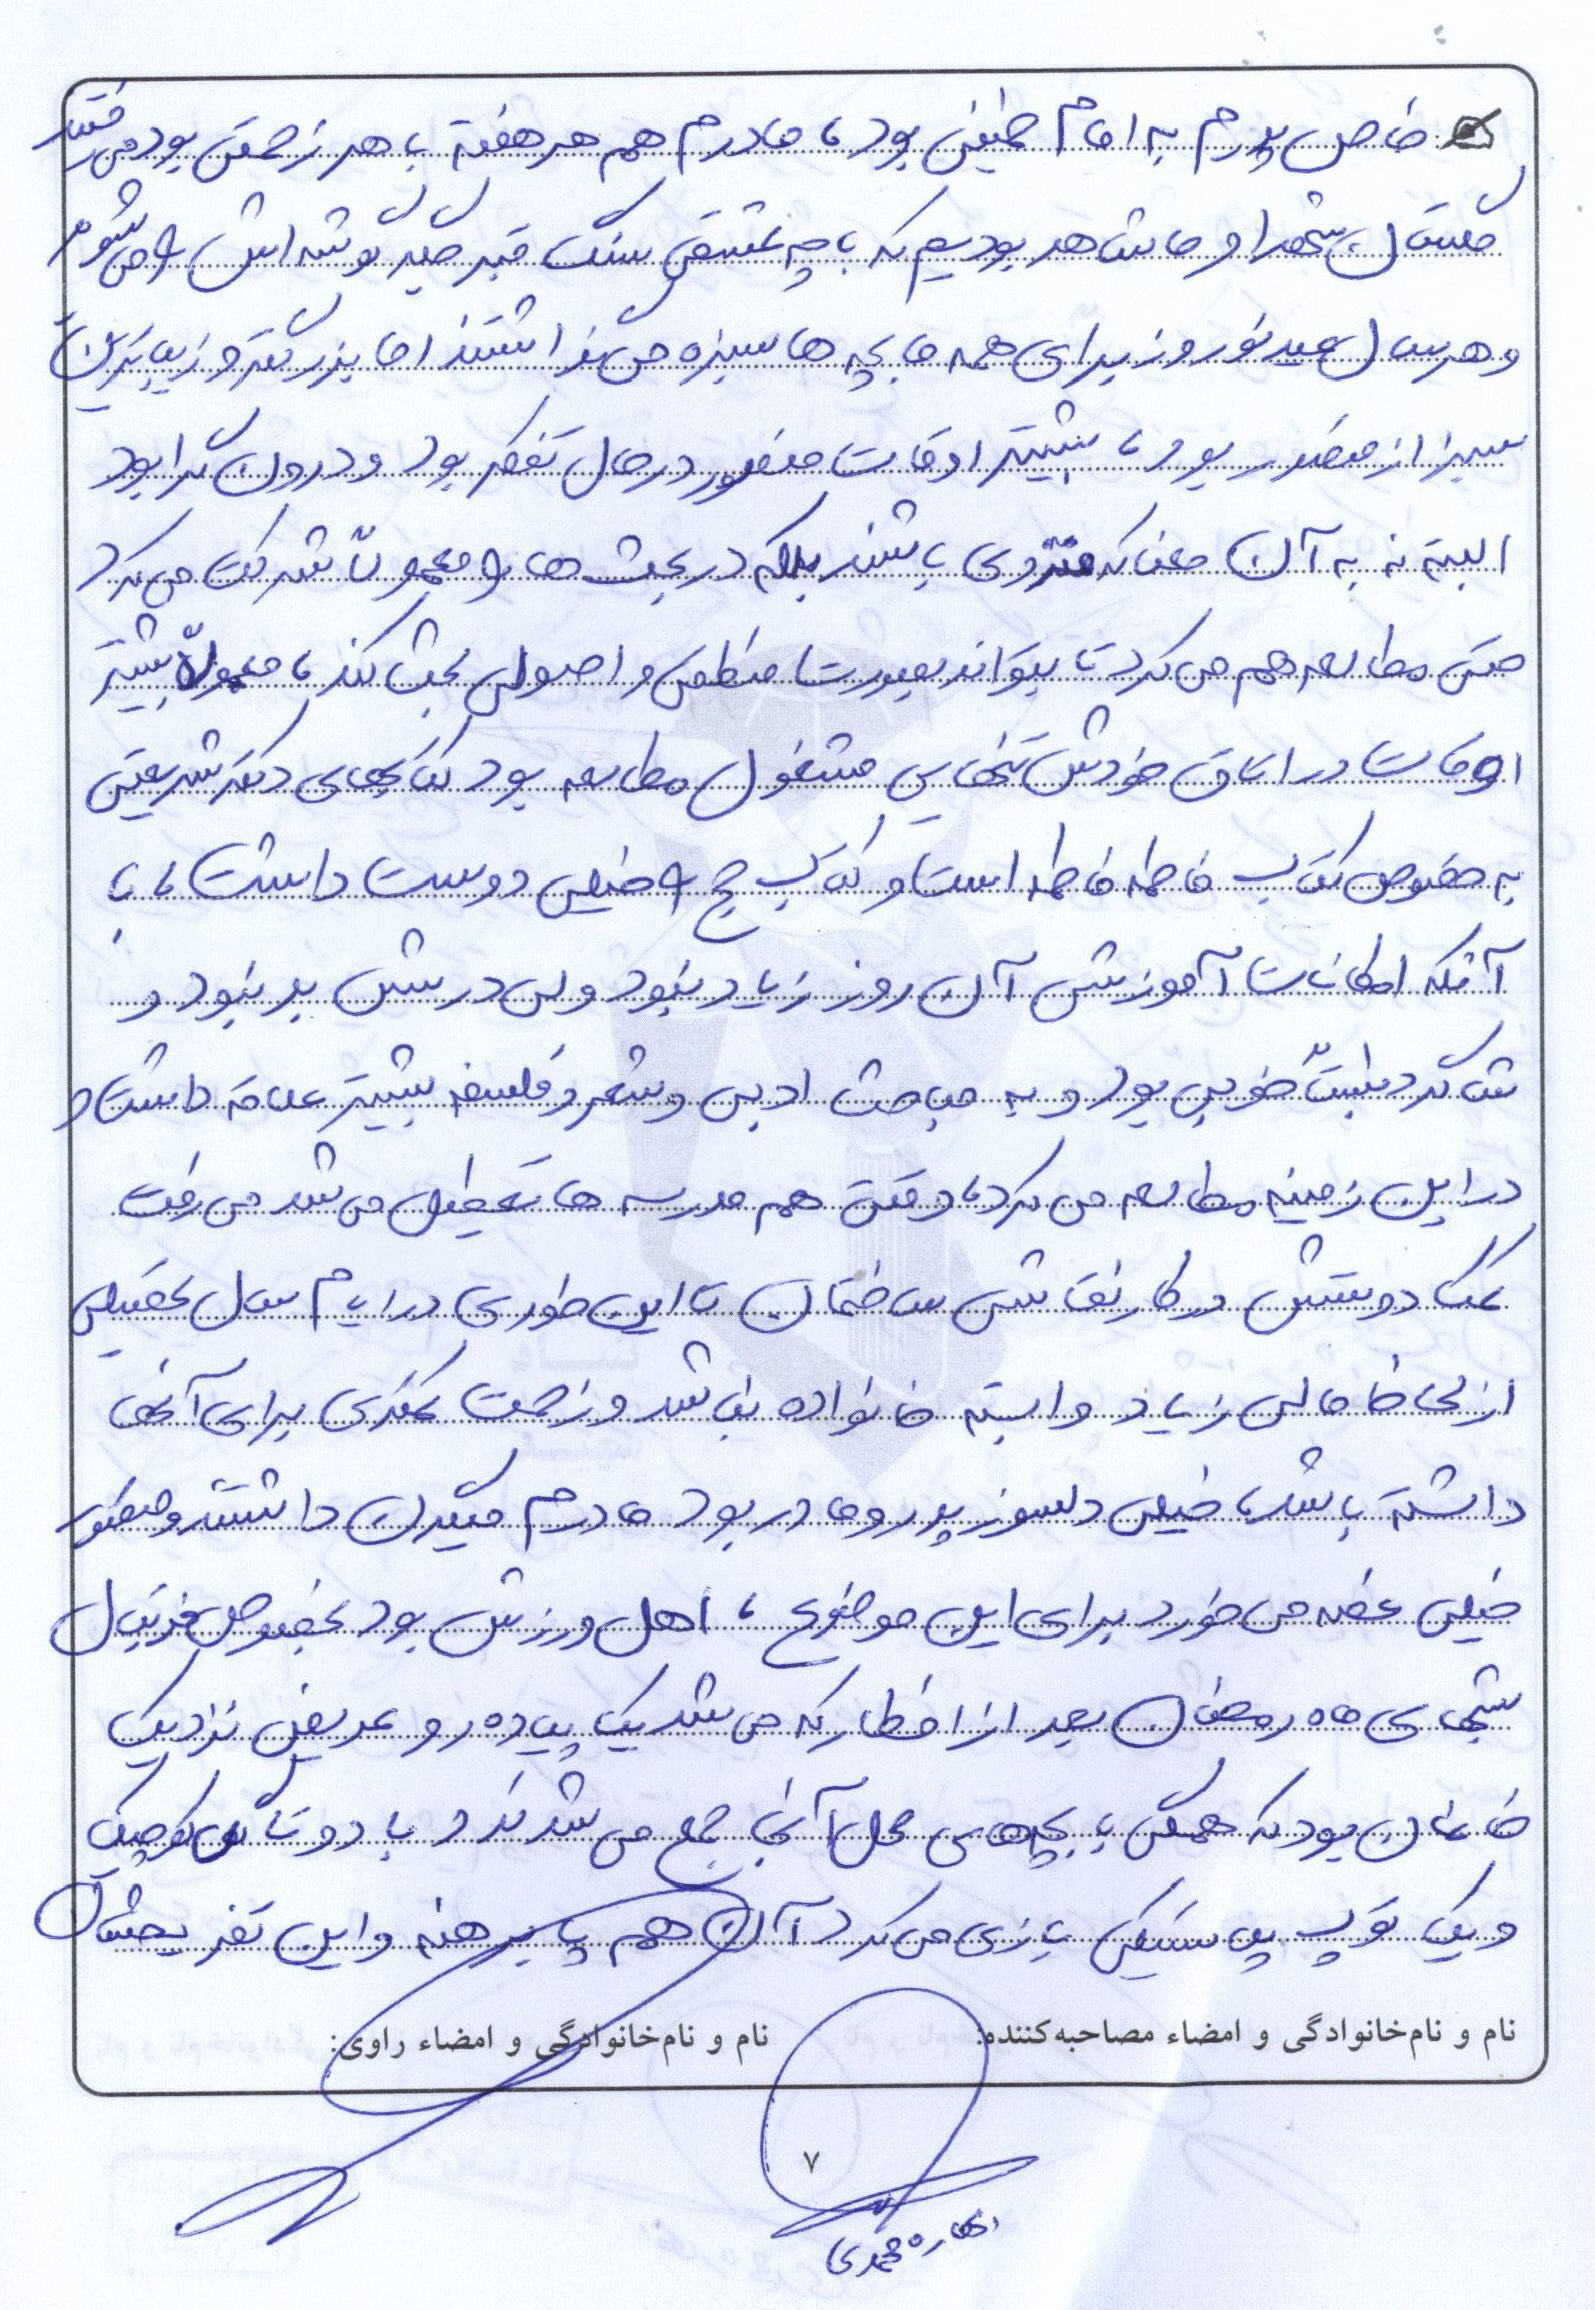 خاص پدرم به امام خمینی بود، مادرم هم هر هفته با هر زحمتی بود می رفتند
گلستان شهدا و ما شاهد بودیم که با چه عشقی سنگ قبر جگر گوشه اش را می شوید
و هر سال عید نوروز برای همه ما بچه ها سبزه می گذاشتند اما بزرگتر و زیباترین
سبز از منصور بود، بیشتر اوقات منصور در حال تفکر بود و درون گرا بود
البته نه به آن معنا که منزوی باشند بلکه در بحث ها معمولاً شرکت می کرد
حتی مطالعه هم می کرد تا بتواند بصورت منطقی و اصولی بحث کند، معمولاً بیشتر
اوقات در اتاق خودش تنهایی مشغول مطالعه بود کتابهای دکتر شریعتی
به خصوص کتاب فاطمه فاطمه است و کتاب حج را خیلی دوست داشت، با
آنکه امکانات آموزشی آن روز زیاد نبود ولی درسش بد نبود و
شاگرد نسبتاً خوبی بود و به مباحث ادبی و شعر و فلسفه بیشتر علاقه داشت و
در این زمینه مطالعه می کرد، وقتی هم مدرسه ها تعطیل می شد می رفت
کمک دوستش در کار نقاشی ساختمان تا این طوری در ایام سال تحصیلی
از لحاظ مالی زیاد وابسته خانواده نباشد و زحمت کمتری برای آنها
داشته باشد، خیلی دلسوز پدر و مادر بود مادرم میگرن داشتند و منصور
خیلی غصه می خورد برای این موضوع، اهل ورزش بود بخصوص فوتبال
شبهای ماه رمضان بعد از افطار که می شد یک پیاده رو عریض نزدیک
خانمان بود که همگی با بچه های محل آنجا جمع می شدند و با دو تا گل کوچیک
و یک توپ پلاستیکی بازی می کرد آن هم پا برهنه و این تفریحشان
نام و نام‌خانوادگی و امضاء مصاحبه‌کننده:
نام و نام‌خانوادگی و امضاء راوی:
۷
محمدی